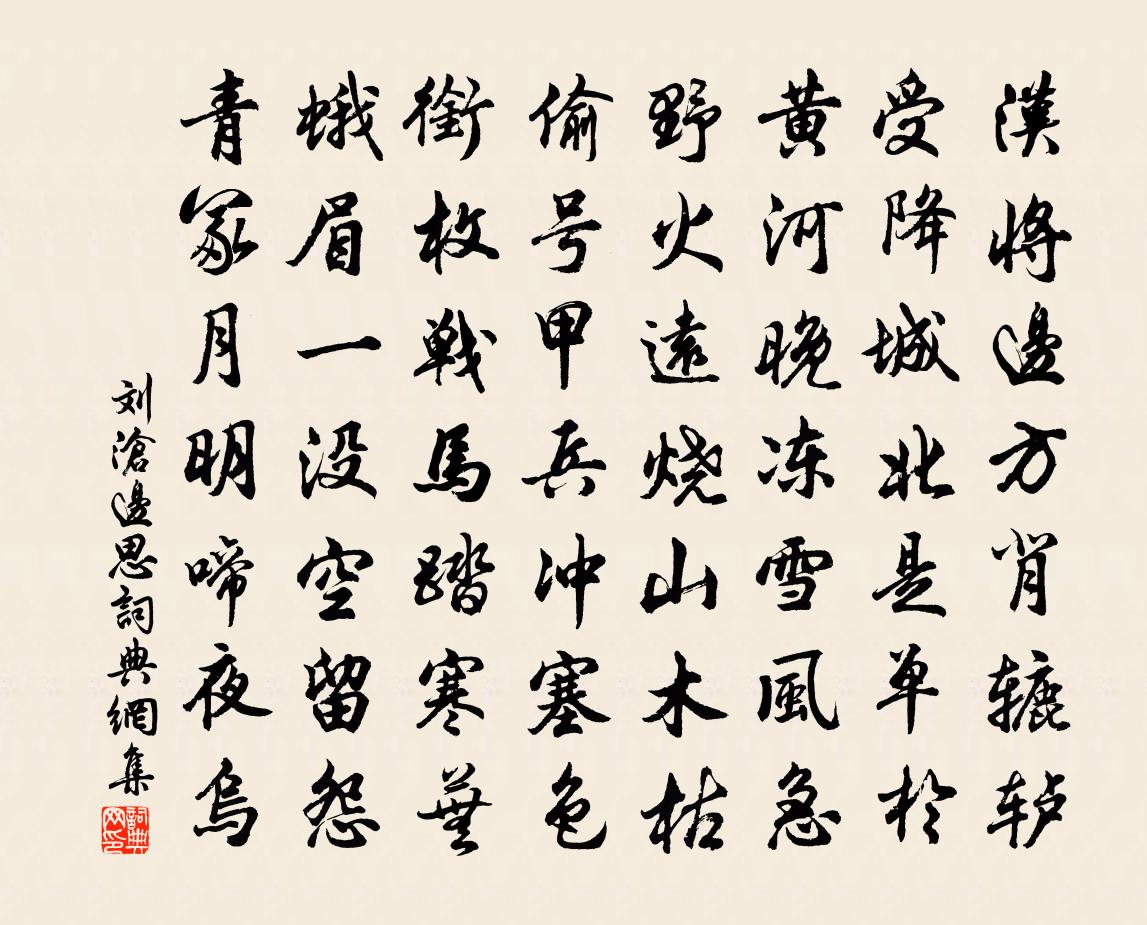 漢將邊方背辘轳
受降城北是单於
黄河晚冻雪風急
野火遠烧山木枯
偷号甲兵冲塞色
銜枚戦馬踏寒蕪
蛾眉一没空留怨
青冢月明啼夜烏
刘滄邊思詞典網集
詞典网印